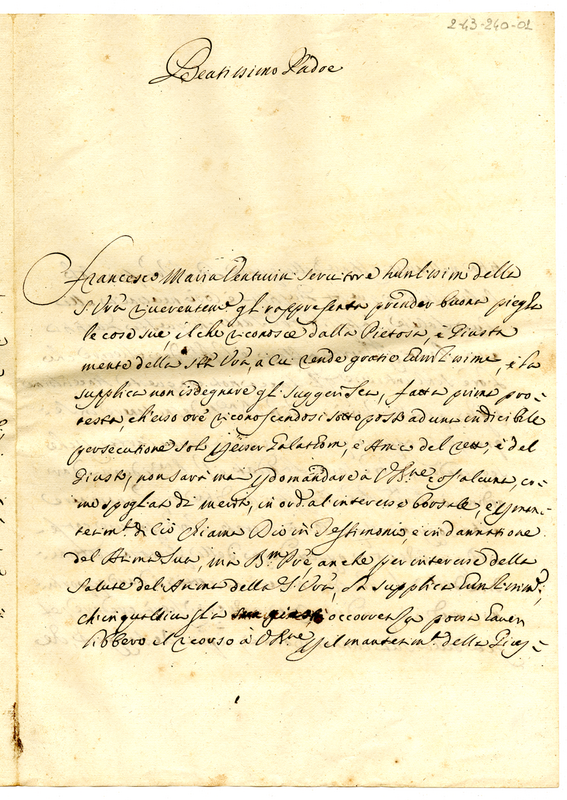 2-43-240-01
Beatissimo Padre
Francesco Maria Venturin servitore humlissim della
S Vrà riverentem.e gli rappresenta prender buona piegha
le cose sue il che riconosce dalla Pietosa, e Giusta
mente della Stà Vrà, à cui rende gratie humlissime, e la
supplica non isdegnare gli suggerisca, fatta prima pro=
testa, ch'esso ore riconoscendosi sottoposto ad una indicibile
persecutione sol esser, e Amco del retto, e del
Giusto, non sarà mai p domandare à cos'alcuna, co=
mo spogliato di merito, in ord. al interesse borsale, e
di Ciò chiama Dio in Testimonio, e in dannatione
del Anima Sua, ma B.mo Prē anche per interesse della
salute del Anima della S Vrà, la supplica humlissim.e,
ch'in qualsia si occorrenza possa haver
libbero el ricorso à pel mantenim.to della Gius=